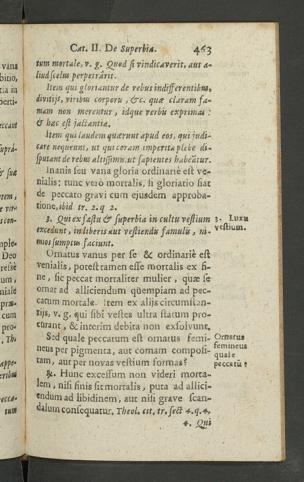 Cat. II. De Superbia. 463
tum mortale, v. g. Quod si vindicaverit, aut a-
liud scelus perpetrârit.
Item qui gloriantur de rebus indifferentibus,
divitijs, viribus corporis, &c. quæ claram fa-
mam non merentur, idque verbis exprimas:
& hæc est jactantia.
Item qui laudem quærunt apud eos, qui judi-
care nequeunt, ut qui coram imperita plebe di-
sputant de rebus altissimis, ut sapientes habeãtur.
Inanis seu vana gloria ordinariè est ve-
nialis; tunc verò mortalis, si gloriatio fiat
de peccato gravi cum ejusdem approba-
tione, ibid tr. 2. q 2.
3. Qui ex fastu & superbia in cultu vestium
excedunt, in liberis aut vestiendis famulis, ni-
mios sumptus faciunt.
3. Luxus
vestium.
Ornatus vanus per se & ordinariè est
venialis, potest tamen esse mortalis ex fi-
ne, sic peccat mortaliter mulier, quæ se
ornat ad alliciendum quempiam ad pec-
catum mortale. Item ex alijs circumstan-
tijs, v. g. qui sibi vestes ultra statum pro-
curant, & interim debita non exsolvunt.
Sed quale peccatum est ornatus femi-
neus per pigmenta, aut comam composi-
tam, aut per novas vestium formas?
Ornatus
femineus
quale
peccatũ?
℞. Hunc excessum non videri morta-
lem, nisi finis sit mortalis, puta ad allici-
endum ad libidinem, aut nisi grave scan-
dalum consequatur, Theol. est, tr. sect 4. q. 4.
4. Qui